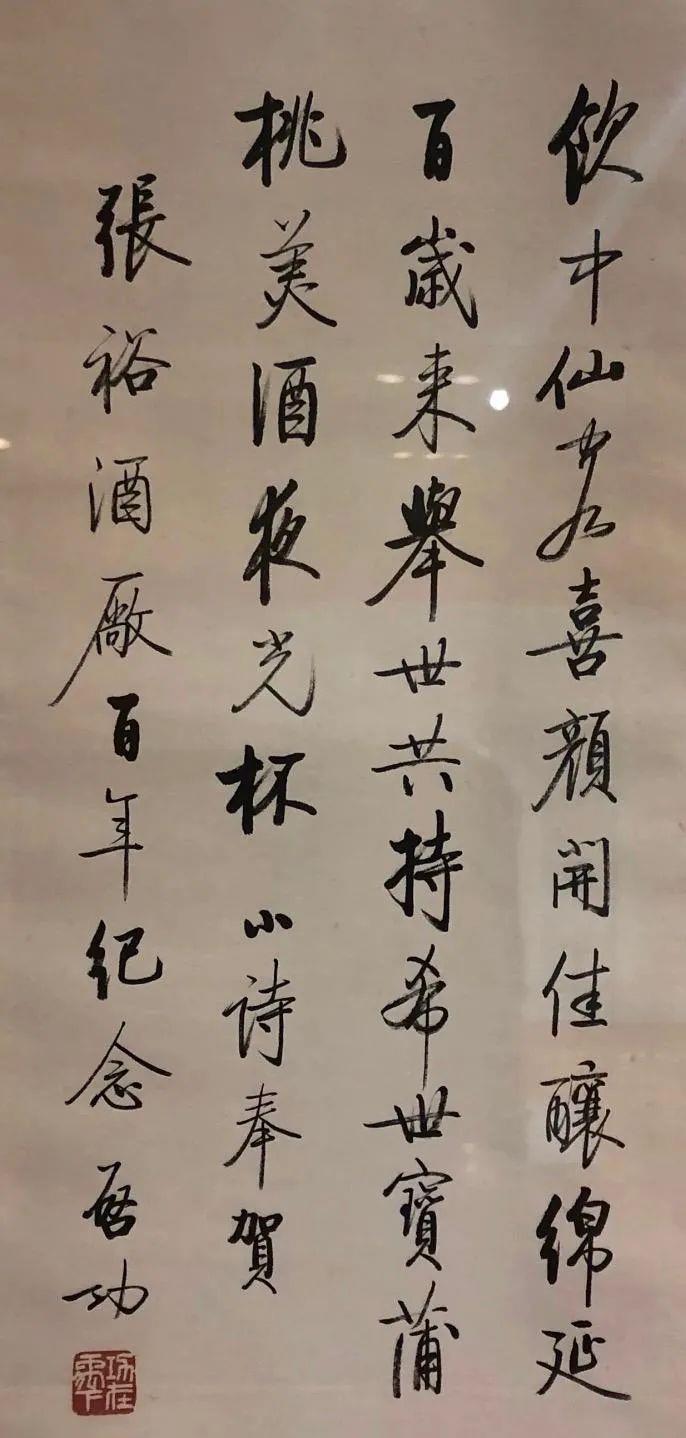 飲中仙喜顏開佳釀綿延
百歲来舉世共持希世寶蒲
桃美酒夜光杯 小詩奉賀
張裕酒廠百年紀念 启功